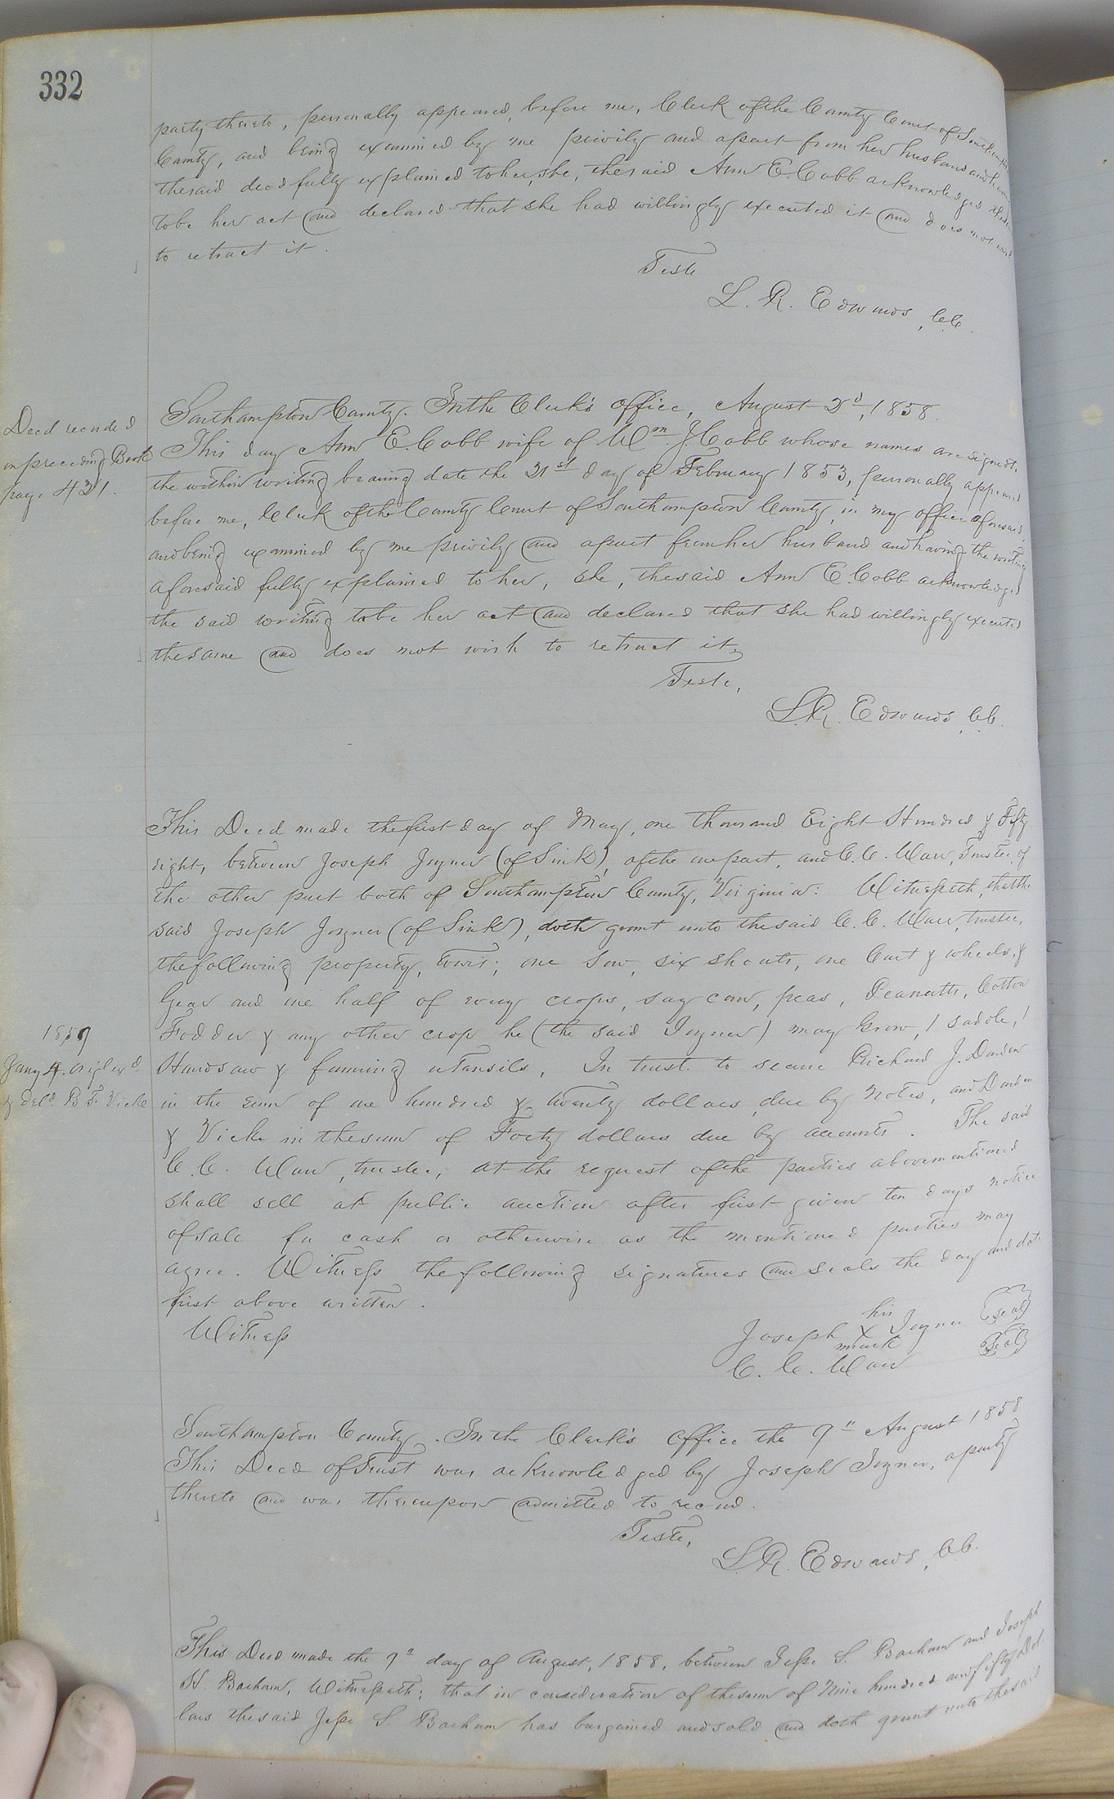 332
party thereto, personally appeared, before me, Clerk of the County Court of Southampton
County, and being examined by me privily and apart from her husband and having
the said deed fully explained to her, she, the said Ann E. Cobb acknowledged the same
to be her act and declared that she had willingly executed it and does not wish
to retract it.
Teste
L. R. Edwards, C.C.
Deed recorded
in preceding Book
page 431.
Southampton County. In the Clerk's office, August 2d, 1858
This day Ann E. Cobb wife of Wm J Cobb whose names are signed to
the within writing bearing date the 21st day of February 1853, personally appeared
before me, Clerk of the County Court of Southampton County, in my office aforesaid,
and being examined by me privily and apart from her husband and having the writing
aforesaid fully explained to her, she, the said Ann E. Cobb acknowledged
the said writing to be her act and declared that she had willingly executed
the same and does not wish to retract it.
Teste,
L. R. Edwards, C.C.
This Deed made the first day of May, one thousand Eight Hundred & Fifty
eight, between Joseph Joyner (of Sink), of the one part, and C. C. Warr, Trustee, of
the other part both of Southampton County, Virginia: Witnesseth, that the
said Joseph Joyner (of Sink), doth grant unto the said C. C. Warr, trustee,
the following property, towit; one Sow, six shoats, one Cart & wheels, &
Gear and one half of every crops, say corn, peas, Peanutts, Cotton
Fodder & any other crop he (the said Joyner) may Grow, 1 saddle, 1
Handsaw & farming utansils, In trust to secure Richard J. Darden
in the sum of one hundred & twenty dollars due by notes, and Darden
& Vick in the sum of Forty dollars due by accounts. The said
C. C. Warr, trustee, at the request of the parties abovementioned
shall sell at public auction after first given ten days notice
of sale for cash or otherwise as the mentioned parties may
agree. Witness the following signatures and seals the day and date
first above written.
1859
Jany 4.
& deld B. F. Vick
Witness
Joseph his X mark Joyner Seal
C. C. Warr Seal
Southampton County. In the Clerk's office the 9th August 1858
This Deed of Trust was acknowledged by Joseph Joyner, a party
thereto and was thereupon admitted to record.
Teste,
L. R. Edwards, C.C.
This Deed made the 9th day of August, 1858, between Jesse S. Barham and Joseph
H. Barham, Witnesseth; that in consideration of the sum of Nine hundred and fifty Dol
lars the said Jesse S Barham has bargained and sold and doth grant unto the said